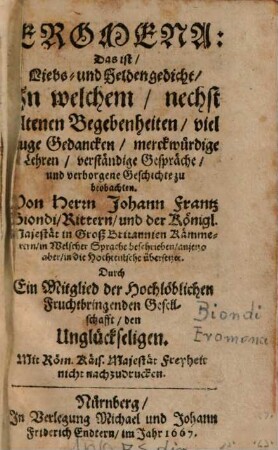 EROMENA:
Das ist /
Liebs- und Heldengedicht /
In welchem / nechst
seltenen Begebenheiten / viel
kluge Gedancken / merckwürdige
Lehren / verständige Gespräche /
und verborgene Geschichte zu
beobachten.
Von Herrn Johann Frantz
Biondi / Rittern / und der Königl.
Majestät in Groß Britannien Kämme-
rern / in Welscher Sprache beschrieben / anjetzo
aber / in die Hochteutsche übersetzet.
Durch
Ein Mitglied der Hochlöblichen
Fruchtbringenden Gesell-
schafft / den
Unglückseligen.
Biondi
Eromena
Mit Röm. Käis. Majestät Freyheit
nicht nachzudrucken.
Nürnberg /
In Verlegung Michael und Johann
Friderich Endtern / im Jahr 1667.